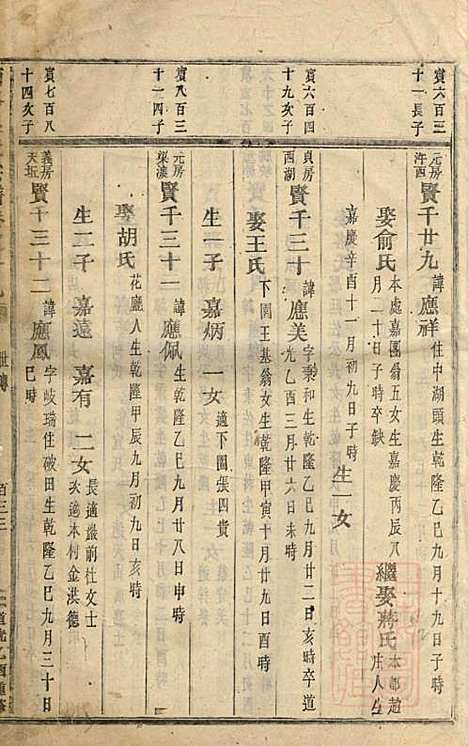 賓六百三
十一長子
元房
泮西
賢千廿九
諱應祥
住中湖頭生乾隆乙巳九月十九日子時
娶俞氏
本處嘉園翁五女生嘉慶丙辰八
月二十日子時卒缺
繼娶蔣氏
本都趙
庄人生
嘉慶辛酉十一月初九日子時
生一女
賓六百四
十九次子
貞房
西湖
賢千三十
諱應美
字秉和生乾隆乙巳九月廿二日亥時卒道
光乙酉三月廿六日未時
娶王氏
下園王基翁女生乾隆甲寅十月廿九日酉時
生一子
嘉炳
一女
適下園張四貴
賓八百三
十一四子
元房
渠濃
賢千三十一
諱應佩
生乾隆乙巳九月廿八日申時
娶胡氏
花廳人生乾隆甲辰九月初九日亥時
生二子
嘉遠
嘉有
二女
長適巖前杜文士
次適本村金洪德
賓七百八
十四次子
義房
天坛
賢十三十二
諱應鳳
字岐瑞住破田生乾隆乙巳九月三十日
巳時
世傳
百三三
道光乙酉重修